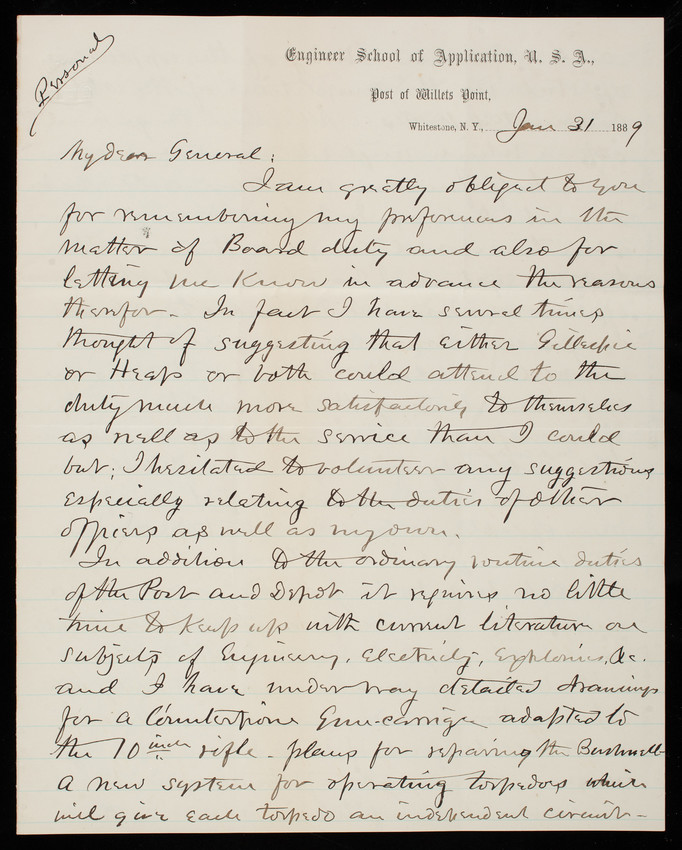 Personal
Engineer School of Application, U. S. A.,
Post of Willets Point,
Whitestone, N. Y., Jan 31 1889
My dear General:
I am greatly obliged to you
for remembering my preferences in the
matter of Board duty and also for
letting me Know in advance the reasons
therefor - In fact I have several times
thought of suggesting that either Gillespie
or Heap or both could attend to the
duty much more satisfactorily to themselves
as well as to the service than I could
but; I hesitated to volunteer any suggestions
especially relating to the duties of other
officers as well as my own.
In addition to the ordinary routine duties
of the Post and Depot it requires no little
time to keep up with current literature on
subjects of Engineery, Electricity, Explosives, &c.
and I have under way detailed drawings
for a Counterpoise Gun-carriage adapted to
the 10 inch rifle - plans for repairing the Bushnell
a new system for operating torpedoes which
will give each torpedo an independent circuit -